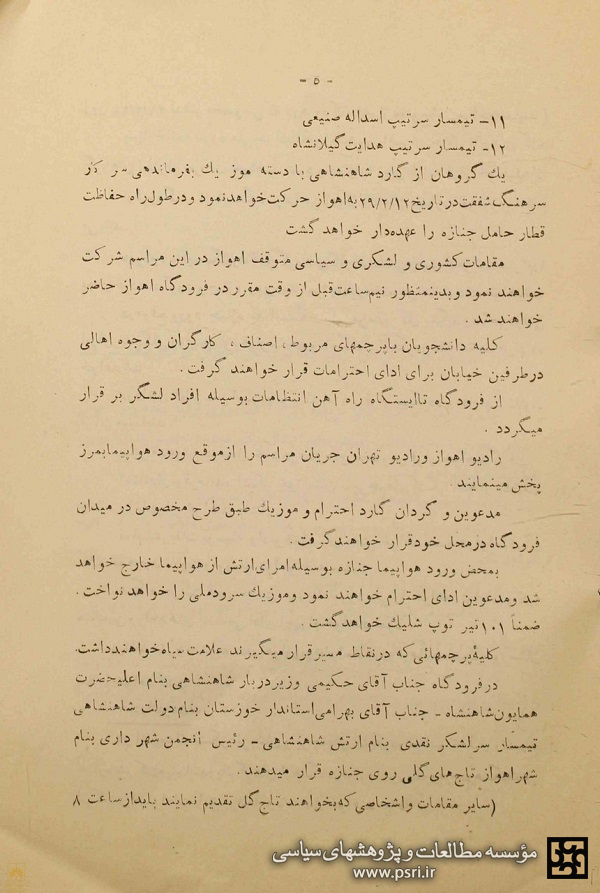 - ۵ -
۱۱- تیمسار سرتیپ اسداله صنیعی
۱۲- تیمسار سرتیپ هدایت گیلانشاه
یك گروهان از گارد شاهنشاهی با دسته موزیك بفرماندهی
سرهنگ شفقت در تاریخ ۲۹/۲/۱۲ به اهواز حرکت خواهد نمود و در طول راه حفاظت
قطار حامل جنازه را عهده‌دار خواهد گشت
مقامات کشوری و لشکری و سیاسی متوقف اهواز در این مراسم شرکت
خواهند نمود و بدینمنظور نیم‌ساعت قبل از وقت مقرر در فرودگاه اهواز حاضر
خواهند شد .
کلیه دانشجویان با پرچمهای مربوط ، اصناف ، کارگران و وجوه اهالی
در طرفین خیابان برای ادای احترامات قرار خواهند گرفت .
از فرودگاه تا ایستگاه راه آهن انتظامات بوسیله افراد لشگر بر قرار
میگردد .
رادیو اهواز و رادیو تهران جریان مراسم را از موقع ورود هواپیما بمرز
پخش مینمایند
مدعوین و گردان گارد احترام و موزیك طبق طرح مخصوص در میدان
فرودگاه در محل خود قرار خواهند گرفت .
بمحض ورود هواپیما جنازه بوسیله امرای ارتش از هواپیما خارج خواهد
شد و مدعوین ادای احترام خواهند نمود و موزیك سرود ملی را خواهد نواخت .
ضمناً ۱۰۱ تیر توپ شلیك خواهد گشت .
کلیهٔ پرچمهائی که در نقاط مسیر قرار میگیرند علامت سیاه خواهند داشت.
در فرودگاه جناب آقای حکیمی وزیر دربار شاهنشاهی بنام اعلیحضرت
همایون شاهنشاه - جناب آقای بهرامی استاندار خوزستان بنام دولت شاهنشاهی
تیمسار سرلشکر نقدی بنام ارتش شاهنشاهی - رئیس انجمن شهر داری بنام
شهر اهواز تاج های گلی روی جنازه قرار میدهند .
(سایر مقامات و اشخاصی که بخواهند تاج گل تقدیم نمایند باید از ساعت ۸
مؤسسه مطالعات و پژوهشهای سیاسی
www.psri.ir